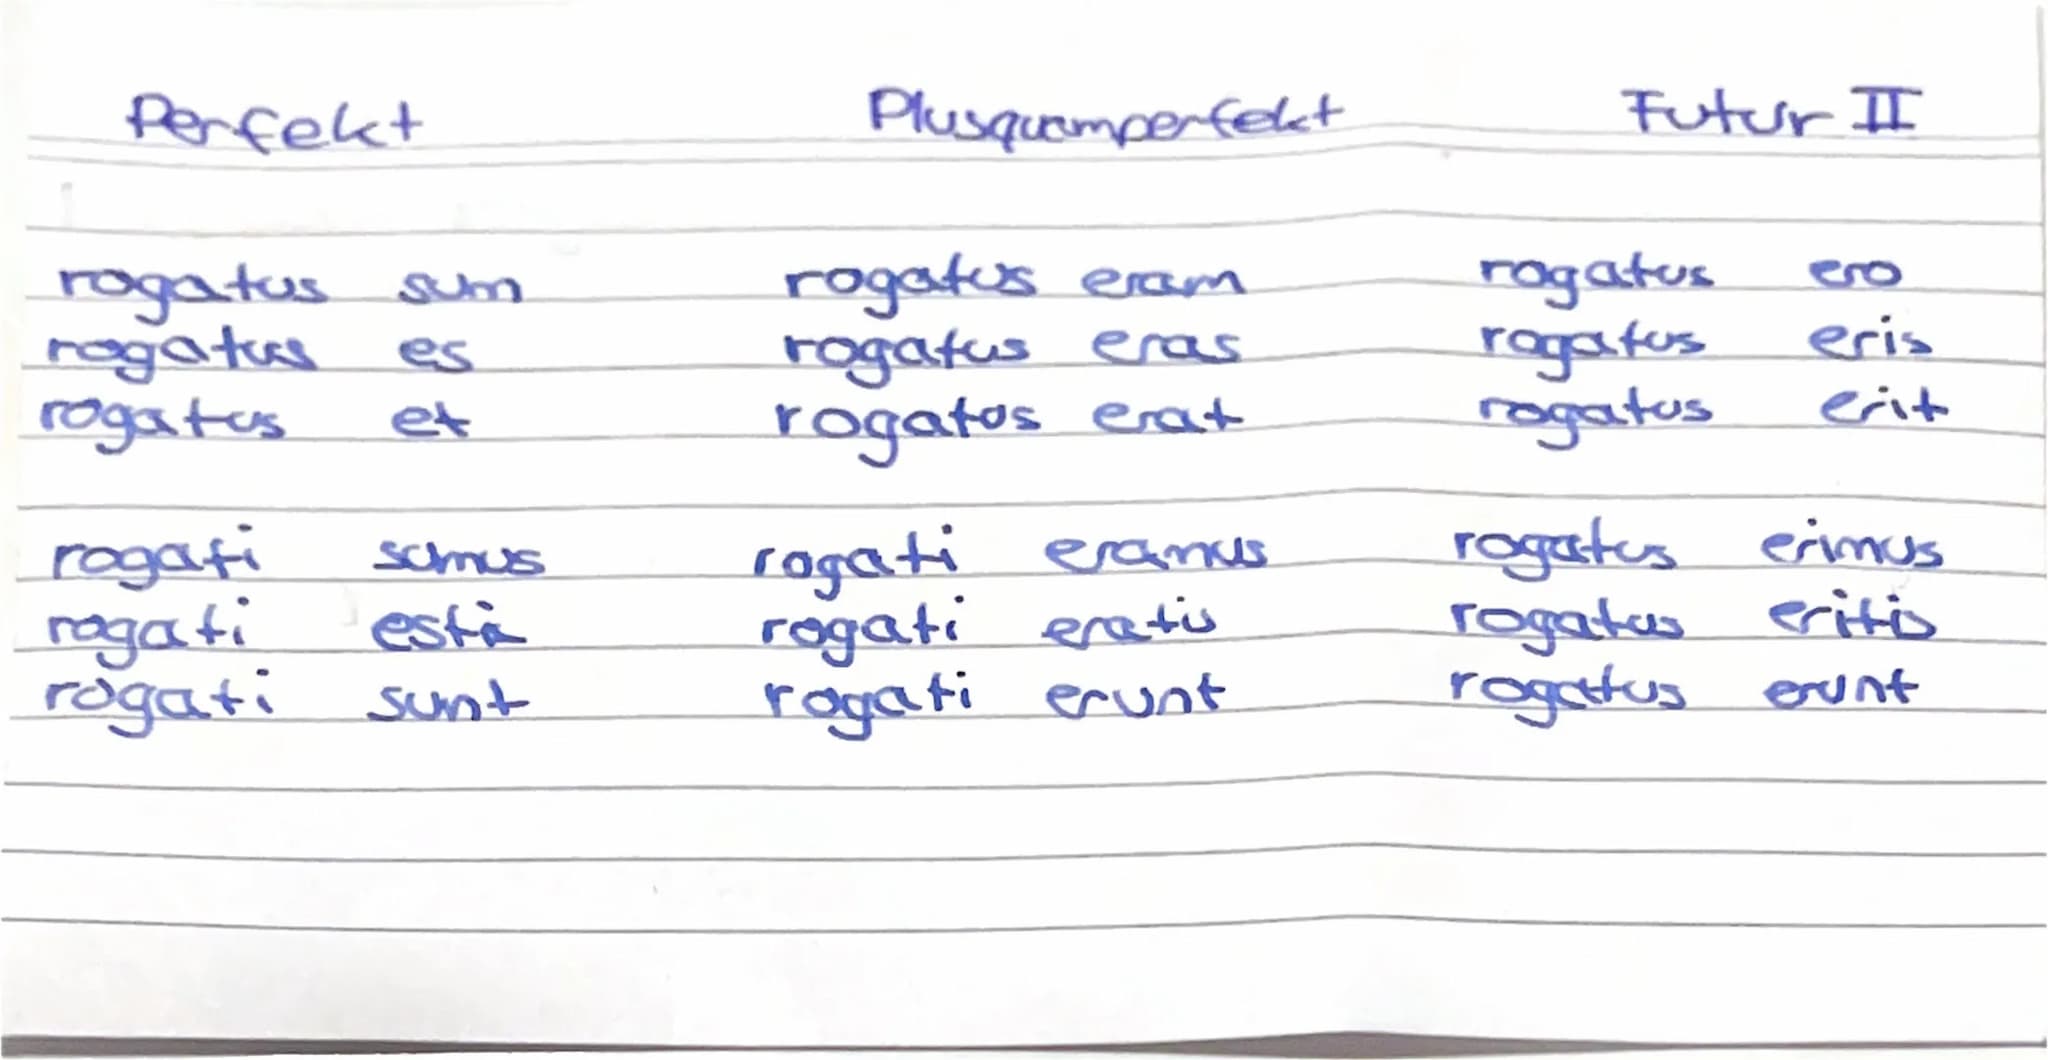 Perfekt Plusquamperfekt Futur II
rogatus sum rogatus eram rogatus ero
rogatus es rogatus eras rogatus eris
rogatus et rogatus erat rogatus erit
rogati sumus rogati eramus rogatus erimus
rogati estis rogati eratis rogatus eritis
rogati sunt rogati erunt rogatus erunt